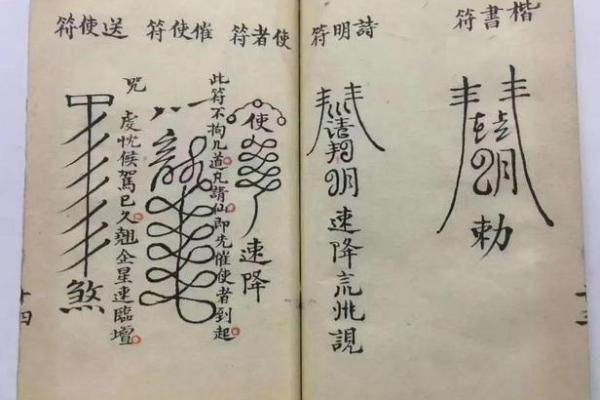 楷書符
勅
詩明符
速降
使者符
使
速降
此符不拘几道凡請仙即先催使者到起
催使符
咒
虔忱候駕已久翹企星速臨壇
送使符
煞
十三
十四